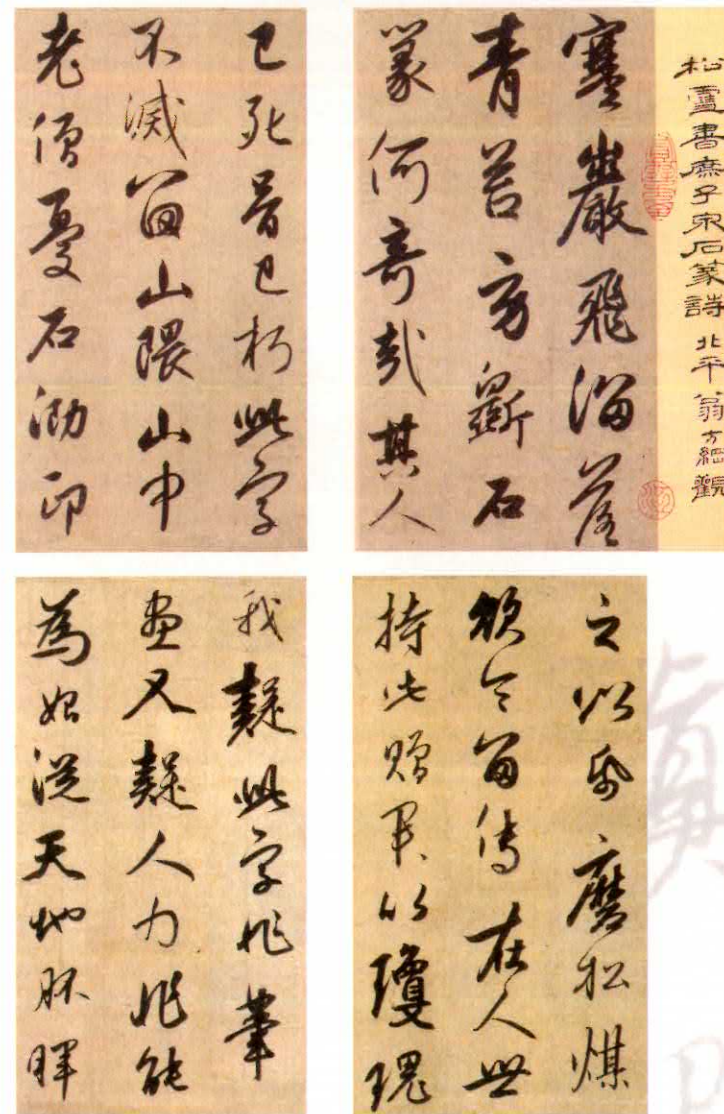 松雪書庶子泉石篆詩 北平翁方綱觀
寒巖飛溜落
青苔旁斲石
篆何奇哉其人
已死骨已朽此字
不滅留山隈山中
老僧憂石泐印
之以紙磨松煤
欲令留傳在人世
持此贈君比瓊瑰
我疑此字非筆
畫又疑人力非能
為始從天地胚暉